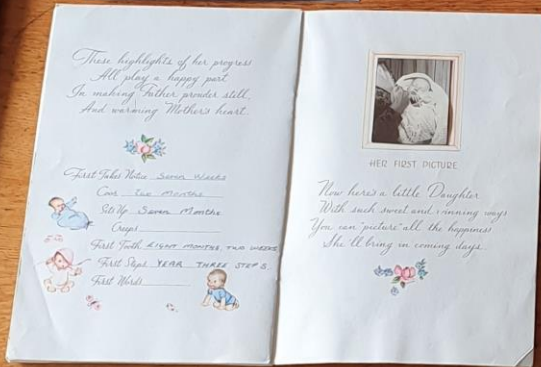 These highlights of her progress
All play a happy part
In making Father prouder still,
And warming Mother's heart.
First Takes Notice Seven Weeks
Coos Two Months
Sits Up Seven Months
Creeps
First Tooth EIGHT MONTHS, TWO WEEKS
First Steps YEAR THREE STEPS
First Words
HER FIRST PICTURE
Now here's a little Daughter
With such sweet and winning ways
You can "picture" all the happiness
She'll bring in coming days.